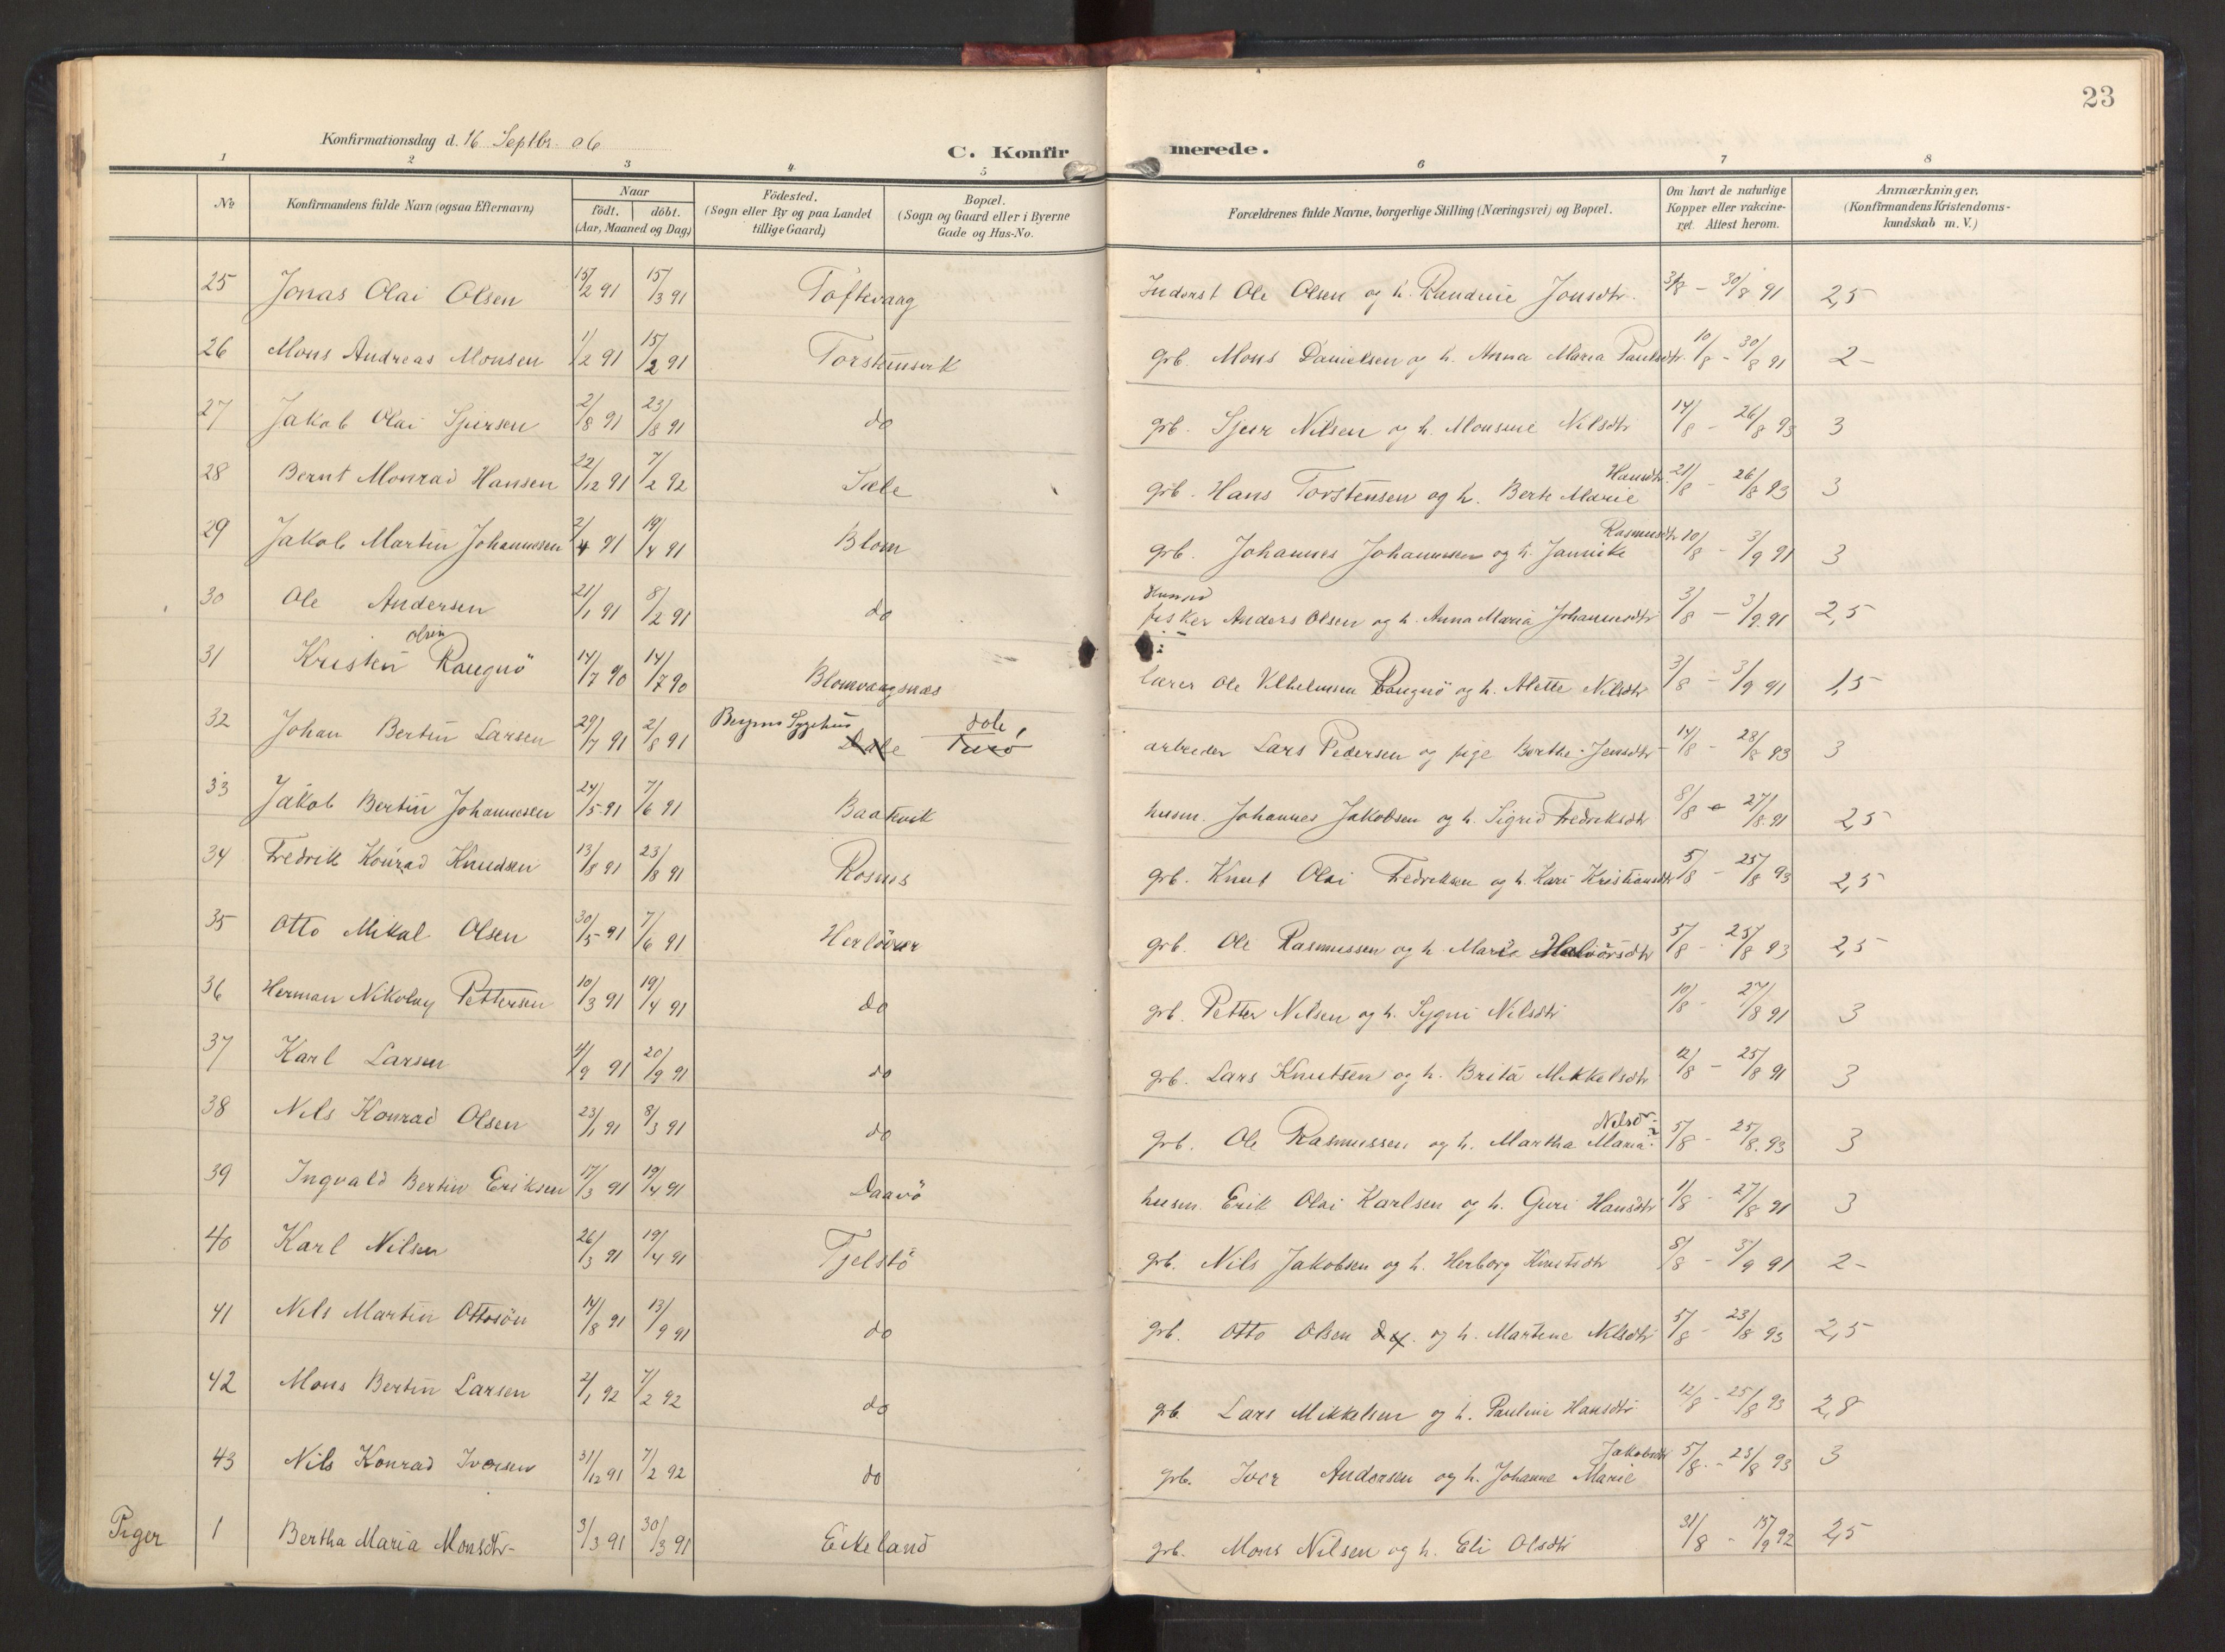 23
Konfirmationsdag d. 16 Septbr. 06
C. Konfirmerede.
1 2 3 4 5 6 7 8
No
Konfirmandens fulde Navn (ogsaa Efternavn)
Naar
födt. döbt.
(Aar, Maaned og Dag)
Födested.
(Sogn eller By og paa Landet
tillige Gaard)
Bopæl.
(Sogn og Gaard eller i Byerne
Gade og Hus-No.
Forældrenes fulde Navne, borgerlige Stilling (Næringsvei) og Bopæl.
Om havt de naturlige
Kopper eller vakcine-
ret. Attest herom.
Anmærkninger.
(Konfirmandens Kristendoms-
kundskab m. V.)
25 Jonas Olai Olsen 15/2 91 15/3 91 Toftevaag Inderst Ole Olsen og h. Randine Jonsdtr. 31/8 - 30/8 91 2,5
26 Mons Andreas Monsen 1/2 91 15/2 91 Torsteinsvik grb. Mons Danielsen og h. Anna Maria Paulsdtr. 10/8 - 30/8 91 2-
27 Jakob Olai Sjursen 2/8 91 23/8 91 do grb. Sjur Nilsen og h. Monsine Nilsdtr 14/8 - 26/8 93 3
28 Bernt Monrad Hansen 22/12 91 7/2 92 Sæle grb. Hans Torstensen og h. Berte Marie Hansdtr. 21/8 - 26/8 93 3
29 Jakob Martin Johannesen 2/4 91 19/4 91 Blom grb. Johannes Johannesen og h. Jannike Rasmusdtr 10/8 - 3/9 91 3
30 Ole Andersen 21/1 91 8/2 91 do fisker Anders Olsen og h. Anna Maria Johannesdtr 3/8 - 3/9. 91 2,5
31 Kristen Olsen Rangnö 14/7 90 14/7 90 Blomvaagsnæs lærer Ole Vilhelmsen Rangnö og h. Alette Nilsdtr 3/8 - 3/9 91 1,5
32 Johan Bertin Larsen 29/7 91 2/8 91 Bergens Sygehus Dale dale, Turö arbeider Lars Pedersen og pige Berthe Jensdtr 14/8 - 28/8 93 3
33 Jakob Bertin Johannesen 24/5 91 7/6 91 Baatevik husm. Johannes Jakobsen og h. Sigrid Fredriksdtr 8/8 - 27/8 91 2,5
34 Fredrik Konrad Knudsen 13/8 91 23/8 91 Rosnes grb. Knut Olai Fredriksen og h. Kari Kristiansdtr 5/8 - 25/8 93 2,5
35 Otto Mikal Olsen 30/5 91 7/6 91 Herlöver grb. Ole Rasmussen og h. Marie Halvorsdtr 5/8 - 25/8 93 2,5
36 Herman Nikolay Pettersen 10/3 91 19/4 91 do grb. Petter Nilsen og h. Sygni Nilsdtr 10/8 - 27/8 91 3
37 Karl Larsen 4/9 91 20/9 91 do grb. Lars Knutsen og h. Brita Mikkelsdtr 12/8 - 25/8 91 3
38 Nils Konrad Olsen 23/1 91 8/3 91 do grb. Ole Rasmussen og h. Martha Maria Nilsdr. 5/8 - 25/8. 93 3
39 Ingvald Bertin Eriksen 17/3 91 19/4 91 Daavö husm. Erik Olai Karlsen og h. Guri Hansdtr 1/8 - 27/8 91 3
40 Karl Nilsen 26/3 91 19/4 91 Tjelstö grb. Nils Jakobsen og h. Herborg Knutsdtr 8/8 - 3/9 91 2-
41 Nils Martin Ottosön 14/8 91 13/9 91 do grb. Otto Olsen og h. Martine Nilsdtr 5/8 - 23/8 93 2,5
42 Mons Bertin Larsen 2/1 92 7/2 92 do grb. Lars Mikkelsen og h. Pauline Hansdtr 12/8 - 25/8 93 2,8
43 Nils Konrad Iversen 31/12 91 7/2 92 do grb. Iver Andersen og h. Johanne Marie Jakobsdtr 5/8. - 23/8 93 3
Piger 1 Bertha Maria Monsdtr- 3/3 91 30/3 91 Eikeland grb. Mons Nilsen og h. Eli Olsdtr 31/8 - 15/9 92 2,5